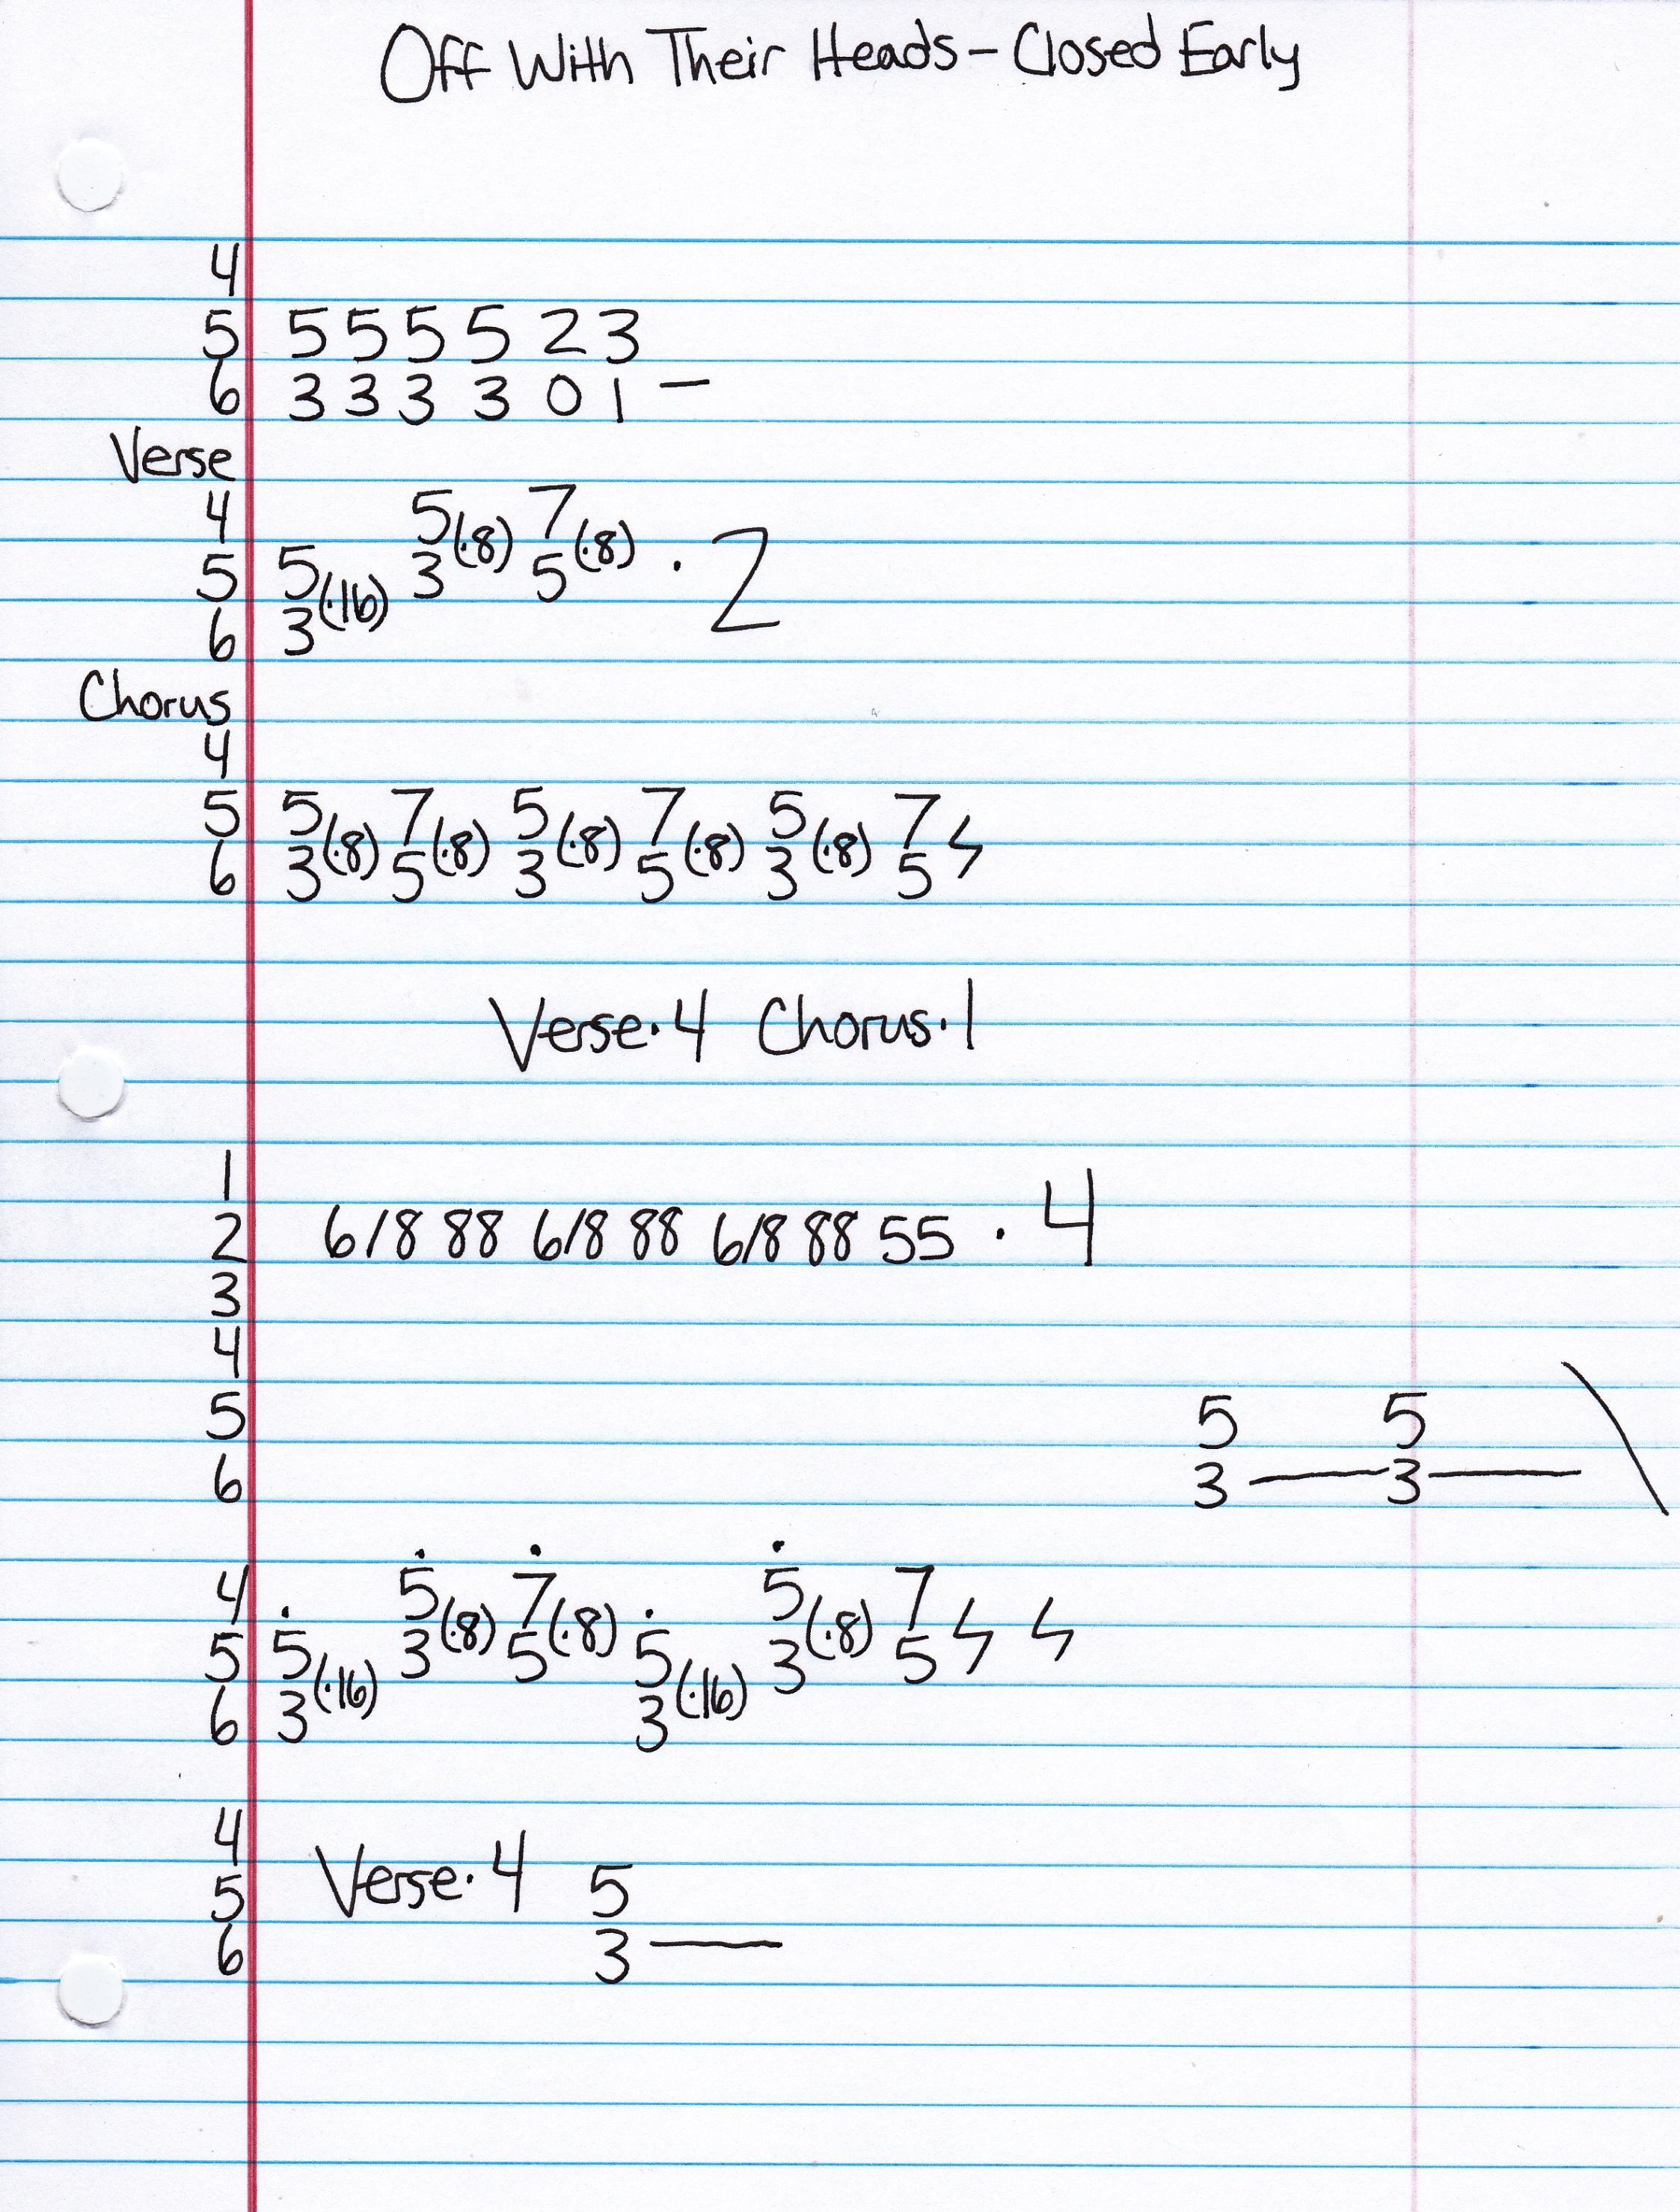 Off With Their Heads - Closed Early
4
5 5 5 5 5 2 3
6 3 3 3 3 0 1 —
Verse
4 5 7
5 5 3 (·8) 5 (·8) · 2
6 3 (·16)
Chorus
4
5 5 7 5 7 5 7
6 3 (·8) 5 (·8) 3 (·8) 5 (·8) 3 (·8) 5 ϟ
Verse · 4 Chorus · 1
1
2 6/8 88 6/8 88 6/8 88 55 · 4
3
4
5 5 5
6 3 — 3 — \
4 5̇ 7̇ 5̇ 7
5 5̇ 3 (·8) 5 (·8) 5̇ 3 (·8) 5 ϟ ϟ
6 3 (·16) 3 (·16)
4
5 Verse · 4 5
6 3 —